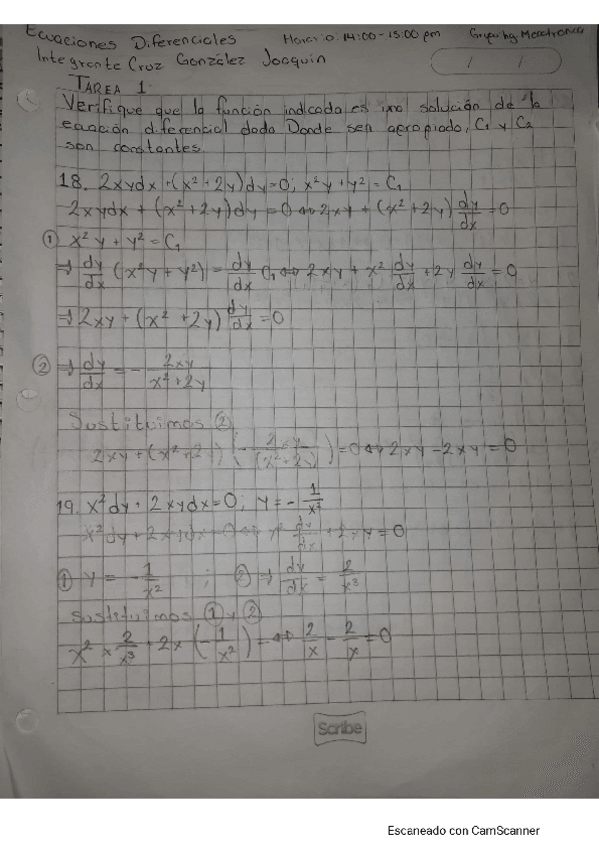 Ecuaciones Diferenciales Horario: 14:00-15:00 pm
Integrante Cruz González Joaquin
TAREA 1
Verifique que la función indicada es una solución de la
ecuación diferencial dada Donde sea apropiado, C₁ y C₂
son constantes.
18. 2xydx + (x² + 2y)dy=0; x²y + y² = C₁
2xydx + (x² + 2y)dy = 0 ⇔ 2xy + (x² + 2y) dy/dx = 0
① x²y + y² = C₁
⇒ dy/dx (x²y + y²) = dy/dx C₁ ⇔ 2xy + x² dy/dx + 2y dy/dx = 0
⇒ 2xy + (x² + 2y) dy/dx = 0
② ⇒ dy/dx = - 2xy/x²+2y
Sustituimos ②
2xy + (x² + 2y) (- 2xy/(x²+2y)) = 0 ⇔ 2xy - 2xy = 0
19. x²dy + 2xydx = 0; y = - 1/x²
x²dy + 2xydx = 0 ⇔ x² dy/dx + 2xy = 0
① y = - 1/x² ; ② ⇒ dy/dx = 2/x³
Sustituimos ① y ②
x² × 2/x³ + 2x (- 1/x²) = ⇔ 2/x - 2/x = 0
Scribe
Escaneado con CamScanner